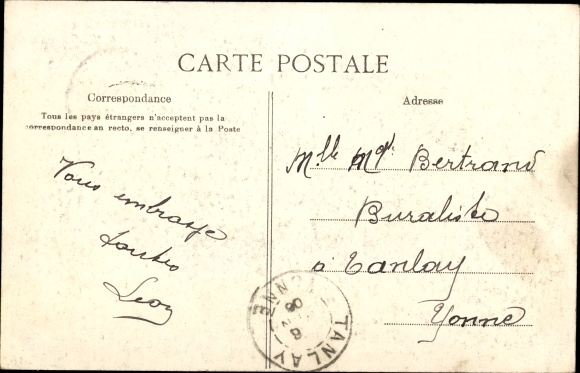 CARTE POSTALE
Correspondance
Tous les pays étrangers n'acceptent pas la
correspondance au recto, se renseigner à la Poste
Vous embrasse
toutes
Léon
Adresse
Mlle Bertrand
Buraliste
à Tanlay
Yonne
TANLAY
YONNE